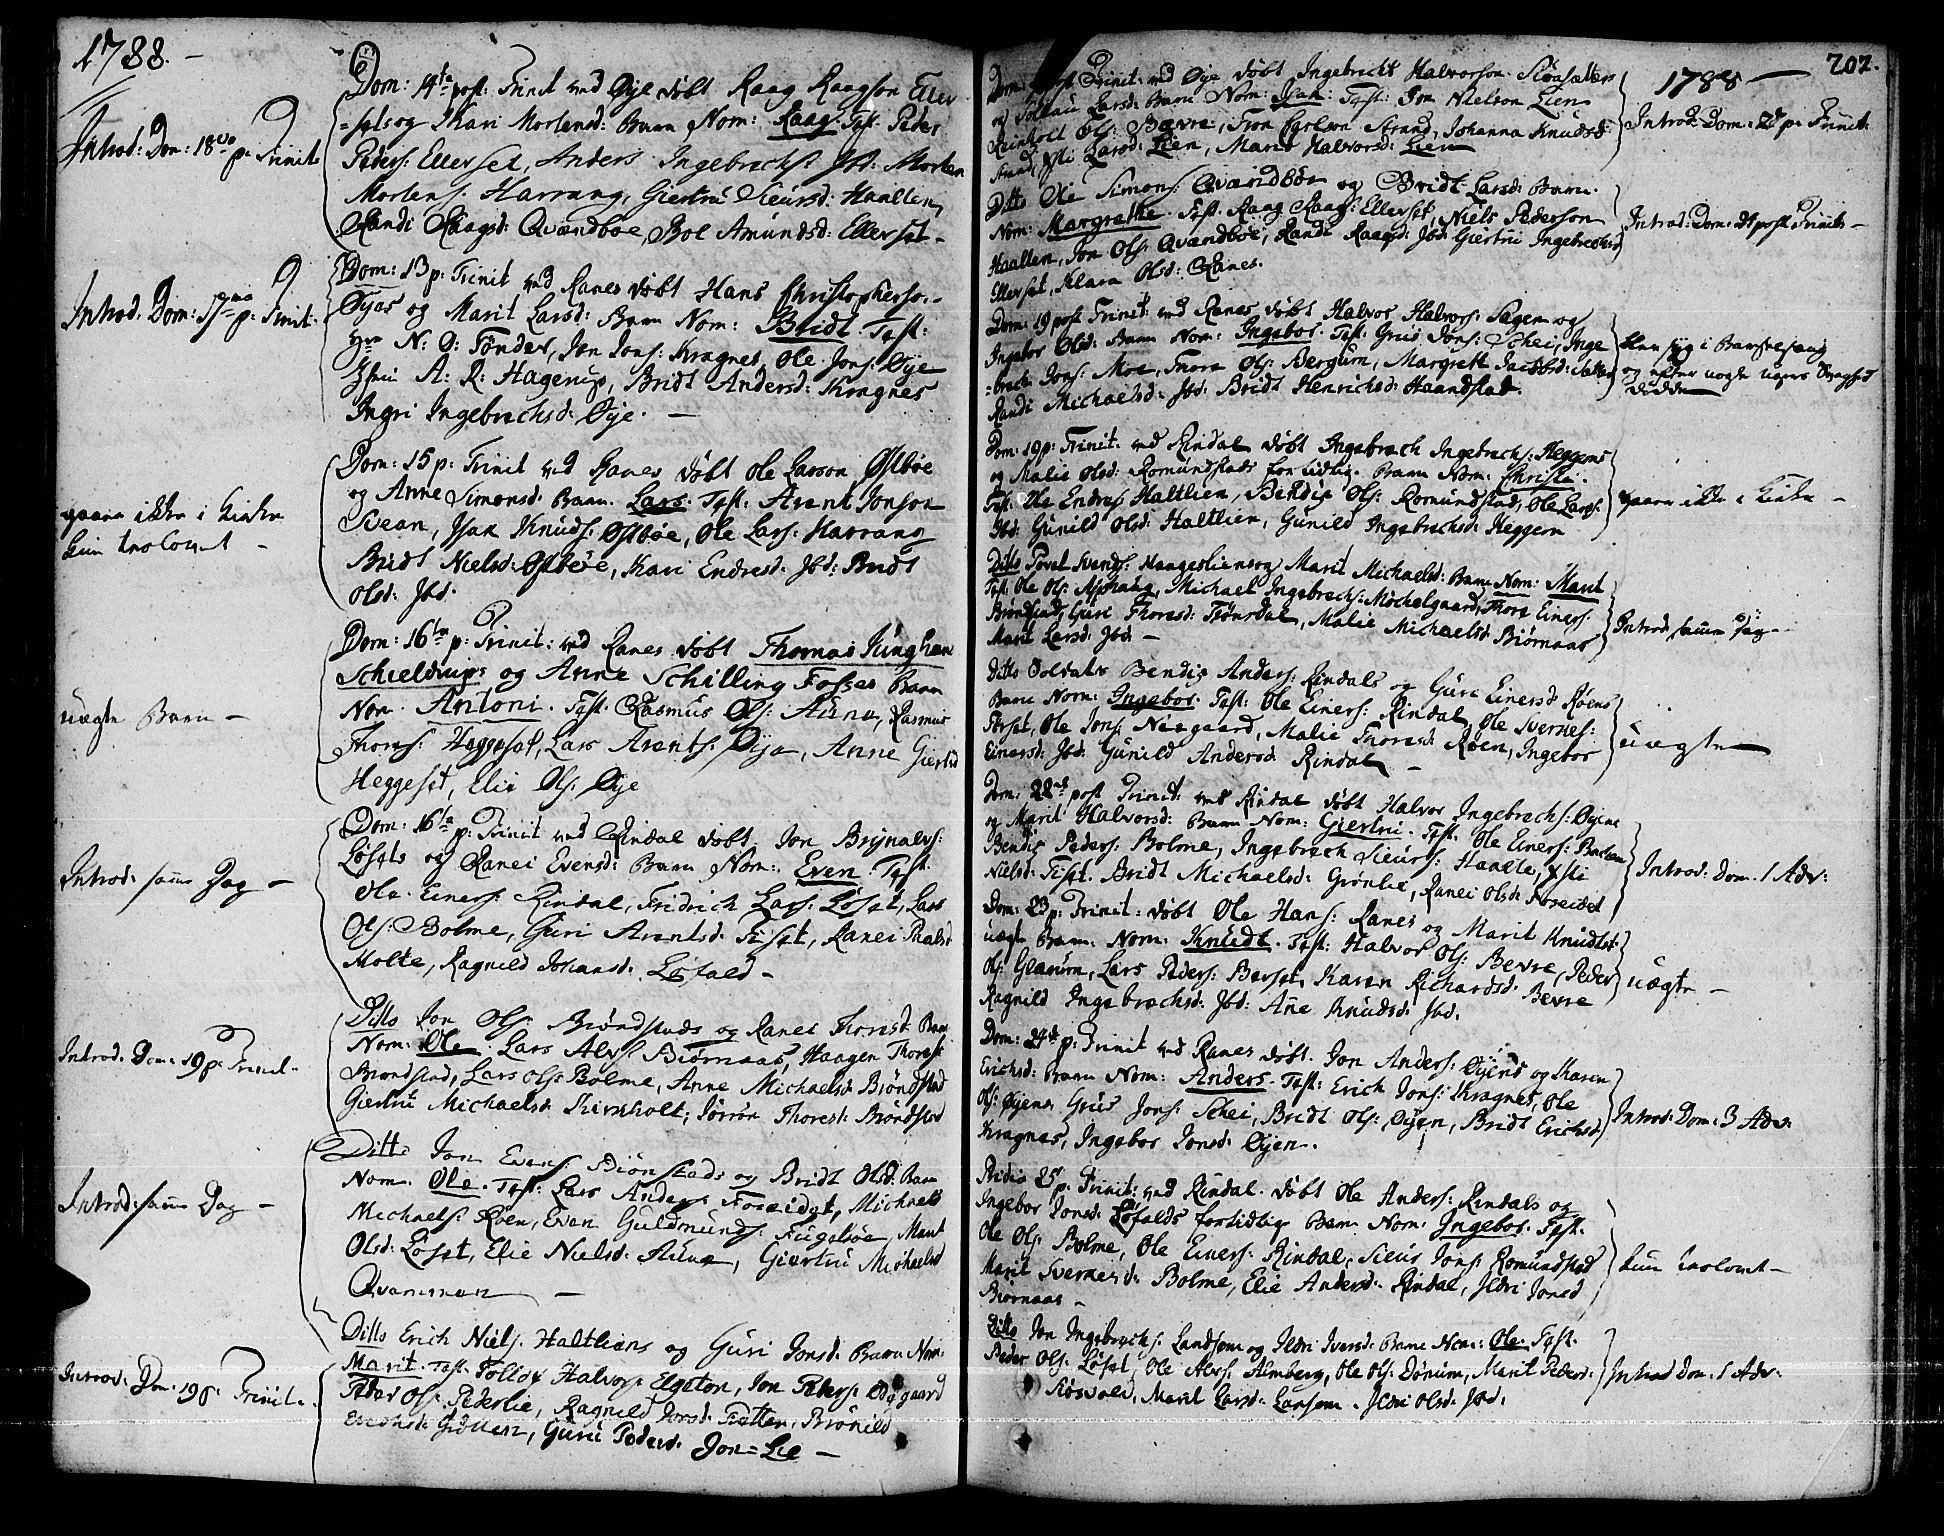 1788. -
Introd: Dom: 18de p: Trinit:
Dom: 14ta post Trinit ved Øye døbt Raag Raagson Eller
=sets og Kari Mortensd: Barn Nom: Raag. Test: Peder
Peders: Ellerset, Anders Ingebrechts: Ibd: Morten
Mortens: Harrang, Giertru Sieursd: Haalten,
Randi Raagsd: Qvændbøe, Bol Amundsd: Ellerset -
Introd: Dom: 17ma p: Trinit:
Dom: 13 p: Trinit ved Ranes døbt Hans Christopherso..
Øyas og Marit Larsd: Barn Nom: Bridt Test:
Hr. N: O: Tønder, Jon Jons: Kragnes, Ole Jons: Øye
A: R: Hagerup, Bridt Andersd: Kragnes
Ingri Ingebrechsd: Øye. -
gaaer ikke i Kirke
kun troloved -
Dom: 15 p: Trinit ved Ranes døbt Ole Larson Østbøe
og Anne Simonsd: Barn Lars. Test: Arent Jonson
Svean, Isak Knuds: Østbøe, Ole Lars: Harrang
Bridt Nielsd: Østbøe, Kari Endresd: Ibd: Bridt
Olsd: Ibd.
uægte Barn -
Dom: 16ta p: Trinit: ved Ranes døbt Thomas Junghan
Schieldrups og Anne Schilling Fosses Barn
Nom. Antoni. Test. Rasmus Ols: Aune, Rasmus
Thores: Heggeset, Lars Arents: Øye, Anne Giertsd
Heggeset, Elie Ols: Øye
Introd: samme Dag -
Dom: 16ta p: Trinit ved Rindal døbt Jon Brynalvs:
Løsets og Ranei Evensd: Barn Nom: Even. Test:
Ole Einers: Rindal, Fridrich Lars: Løset, Lars
Ols: Bolme, Guri Arentsd: Tiset, Ranei
Molte, Ragnild Johansd: Løfald -
Introd: Dom: 19 p: Trinit.
Ditto Jon Ols: Brøndstads og Ranei Thoresd: Barn
Nom: Ole. Lars Alvs: Biørnaas, Haagen Thores:
Brøndstad, Lars Ols: Bolme, Anne Michaelsd: Brøndstad
Giertru Michaelsd: Kirkholt, Jørren Thoresd: Brøndstad
Introd: samme Dag -
Ditto Jon Evens: Biønstads og Bridt Olsd: Barn
Nom. Ole. Test: Lars Anders: Foseidet, Michael
Michaels: Røen, Even Guldmunds: Fugelsøe, Marit
Olsd: Løset, Elie Nielsd: Aune, Giertru Michaelsd
Qvammen -
Introd: Dom. 19 p: Trinit.
Ditto Erich Niels: Haltliens og Guri Jonsd: Barn Nom:
Marit. Test. Tollef Halvors: Elgeton, Jon Peders: Bøggaard
Peder Ols: Pederlie, Ragnild Jonsd: Flatten, Brønild
Guri Pedersd: Jon=Lie -
1788 - 202.
Dom: post Trinit: ved Øye døbt Ingebricht Halvorson Sløasætter
og Larsd: Barn Nom: Isak: Test: Jon Nielson Lien
Reinholt Ols: Bævre, Tron Strand, Johanna Knudsd:
Strand, Larsd: Lien, Marit Halvorsd: Lien
Introd: Dom: p: Trinit:
Ditto Ole Simons: Qvændbøe og Bridt Larsd: Barn.
Nom: Margrethe. Test. Raag Raags: Ellerset, Niels Pederson
Haalten, Jon Ols: Qvændbøe, Randi Raagsd: Ibd: Giertru Ingebrechtsd
Ellerset, Klara Olsd: Ranes.
Introd: Dom: 21 post Trinit: -
Dom: 19 post Trinit: ved Ranes døbt Halvor Halvors: Sagen og
Ingebor Olsd: Barn Nom: Ingebor. Test: Gruus Jons: Schei, Inge
=brech Jons: Moe, Thora Ols: Bergum, Margrett Jacobsd: Sætter
Randi Michaelsd: Ibd: Bridt Henrichsd: Haandstad.
blev syg i Barselseng
og efter nogle ugers Svaghed
døde
Dom: 19 p: Trinit: ved Rindal døbt Ingebrech Ingebrechs: Heggems
og Malie Olsd: Romundstads for tidlig. Barn Nom: Christi.
Test: Ole Endres: Haltlien, Bendix Ols: Romundstad, Ole Lars:
Ibd: Gunild Olsd: Haltlien, Gunild Ingebrechsd: Heggem
gaaer ikke i Kirke -
Ditto Povel Svends: Haagesliens og Marit Michaelsd: Barn Nom: Marit
Test: Ole Ols: Asphaug, Michael Ingebrechs: Mochelgaard, Thore Einers:
Brøndstad, Guri Thoresd: Tiønsdal, Malie Michaelsd: Biørnaas
Marit Larsd: Ibd: -
Introd: samme Dag -
Ditto Soldat Bendix Anders: Rindals og Guri Einersd Røens
Barn Nom: Ingebor. Test: Ole Einers: Rindal, Ole Svernes:
Torset, Ole Jons: Nisgaard, Malie Thoresd: Røen, Ingebor
Einersd: Ibd: Gunild Andersd: Rindal -
uægte
Dom: 22de post Trinit: ved Rindal døbt Halvor Ingebrechs: Øyene
og Marit Halvorsd: Barn Nom: Giertru. Test. Ole Einers:
Bendix Peders: Bolme, Ingebrech Sieurs: Haalte, Kisti
Nielsd: Tiset. Bridt Michaelsd: Grønlie, Ranei Olsd: Foseidet
Introd: Dom. 1 Adv:
Dom: 23 p: Trinit: døbt Ole Hans: Ranes og Marit Knudtsd:
uægte Barn. Nom: Knudt. Test: Halvor Ols: Bevre, Peder
Ols: Glærum, Lars Peders: Berset, Karen Richardsd: Bevre
Ragnild Ingebrechsd: Ibd: Ane Knudsd: Ibd.
uægte -
Dom: 24de p: Trinit ved Ranes døbt. Jon Anders: Øyens og Karen
Erichsd: Barn Nom: Anders. Test: Erich Jons: Kragnes, Ole
Ols: Øyene Gruus Jons: Schei, Bridt Ols: Øyen, Bridt Erichsd:
Kragnes, Ingebor Jonsd: Øyen.
Introd: Dom: 3 Adv:
25 p: Trinit: ved Rindal. døbt Ole Anders: Rindals og
Ingebor Jonsd: Løfalds fortidlig Barn Nom: Ingebor. Test.
Ole Ols: Bolme, Ole Einers: Rindal, Sieur Jons: Romundstad
Marit Svernesd: Bolme, Elie Andersd: Rindal, Ildri Jonsd
Biørnaas -
kun troloved -
Ditto Jon Ingebrechs: Landsem og Ildri Iversd: Barn Nom: Ole. Test.
Peder Ols: Løset, Ole Alvs: Almberg, Ole Ols: Dønum, Marit Pedersd:
Røsvold, Marit Larsd: Lansem. Ildri Olsd: Ibd.
Introd Dom: 1 Adv: